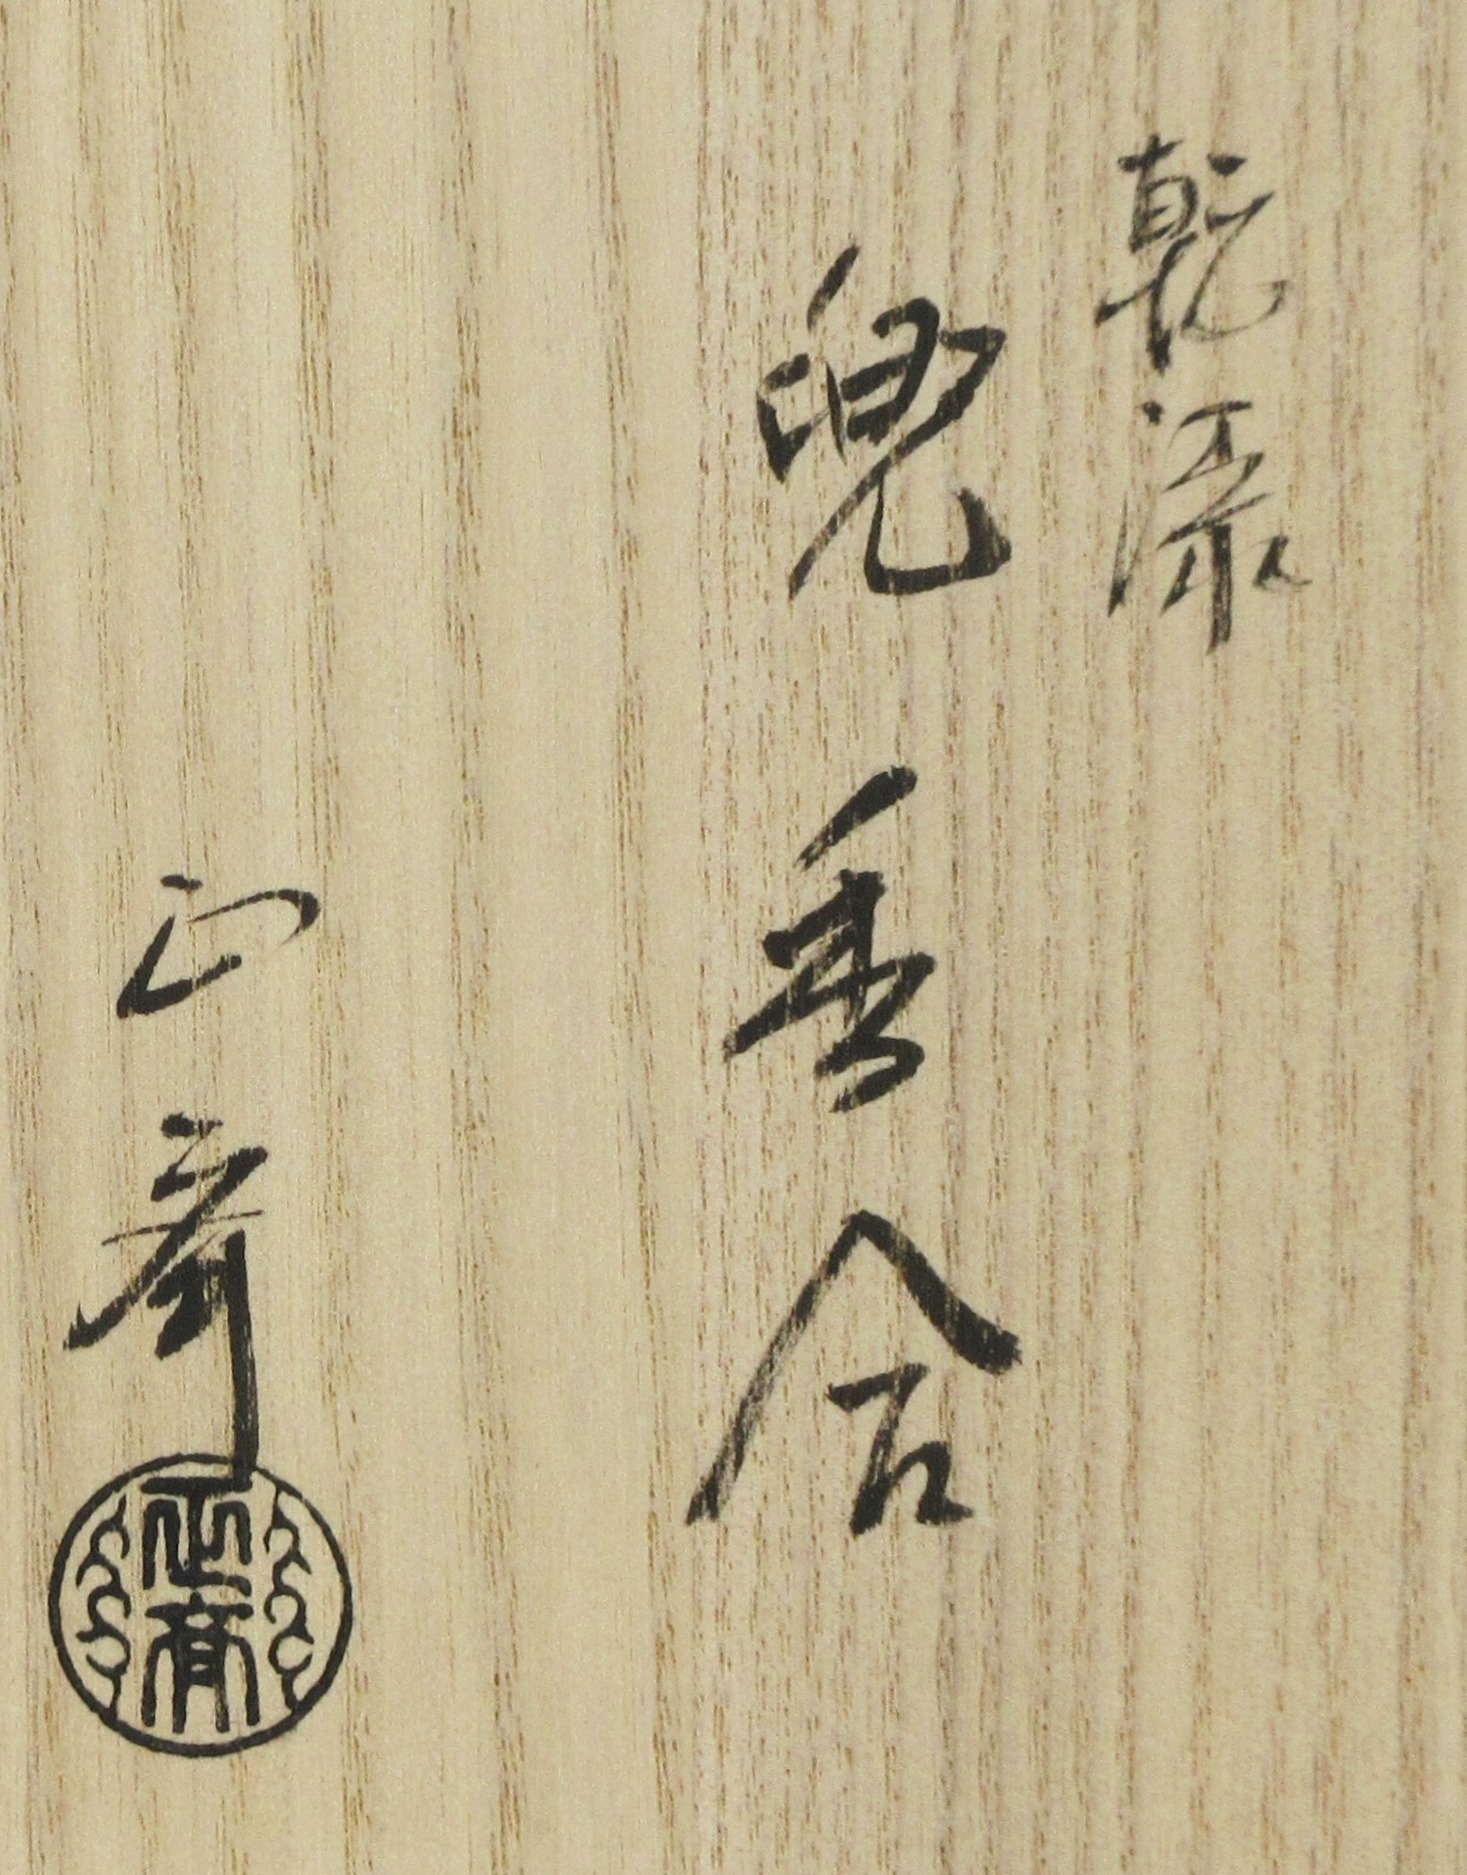 乾漆
兜香合
正斎
正斎